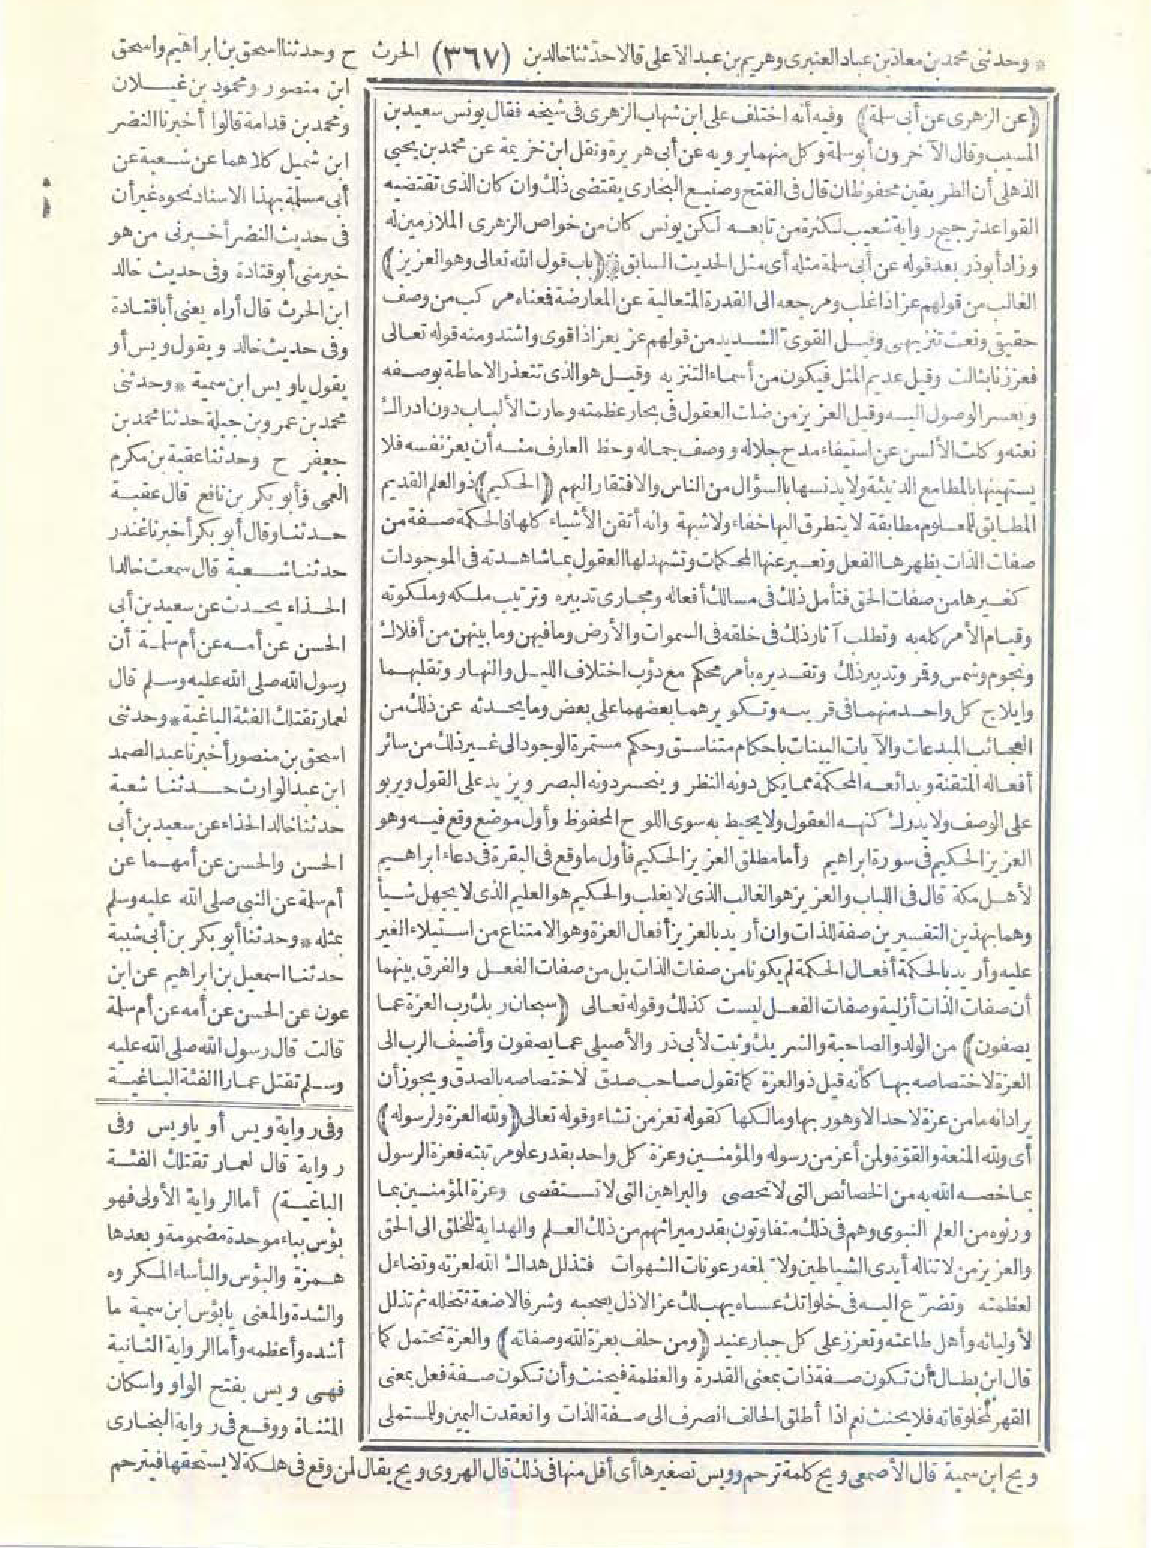 * وحدثني محمد بن معاذ بن عباد العنبري وهريم بن عبد الاعلى قالا حدثنا خالد بن (٣٦٧) الحرث ح وحدثنا اسحق بن ابراهيم واسحق
(عن الزهري عن أبي سلمة) وفيه أنه اختلف على ابن شهاب الزهري في شيخه فقال يونس سعيد بن
المسيب وقال الآخرون أبو سلمة وكل منهما يرويه عن أبي هريرة ونقل ابن خزيمة عن محمد بن يحيى
الذهلي أن الطريقين محفوظان قال في الفتح وصنيع البخاري يقتضي ذلك وان كان الذي تقتضيه
القواعد ترجيح رواية شعيب لكثرة من تابعه لكن يونس كان من خواص الزهري الملازمين له
وزاد أبو ذر بعد قوله عن أبي سلمة مثله أي مثل الحديث السابق (باب قول الله تعالى وهو العزيز)
الغالب من قولهم عز اذا غلب ومرجعه الى القدرة المتعالية عن المعارضة فمعناه مركب من وصف
حقيقي ونعت تنزيهي وقيل القوي الشديد من قولهم عز يعز اذا قوى واشتد ومنه قوله تعالى
فعززنا بثالث وقيل عديم المثل فيكون من أسماء التنزيه وقيل هو الذي تتعذر الاحاطة بوصفه
ويعسر الوصول اليه وقيل العزيز من ضلت العقول في بحار عظمته وحارت الألباب دون ادراك
نعته وكلت الألسن عن استيفاء مدح جلاله ووصف جماله وحظ العارف منه أن يعز نفسه فلا
يستهينها بالمطامع الدنيئة ولا يدنسها بالسؤال من الناس والافتقار اليهم (الحكيم) ذو العلم القديم
المطابق للمعلوم مطابقة لا يتطرق اليها خفاء ولا شبهة وانه أتقن الأشياء كلها فالحكمة صفة من
صفات الذات يظهرها الفعل وتعبر عنها المحكمات وتشهد لها العقول بما شاهدته في الموجودات
كغيرها من صفات الحق فتأمل ذلك في مسالك أفعاله ومجاري تدبيره وترتيب ملكه وملكوته
وقيام الأمر كله به وتطلب آثار ذلك في خلقه في السموات والأرض وما فيهن وما بينهن من أفلاك
ونجوم وشمس وقمر وتدبير ذلك وتقديره بأمر محكم مع دؤب اختلاف الليل والنهار وتقلبهما
وايلاج كل واحد منهما في قرينه وتكويرهما بعضهما على بعض وما يحدثه عن ذلك من
العجائب المبدعات والآيات البينات باحكام متناسق وحكم مستمرة الوجود الى غير ذلك من سائر
أفعاله المتقنة وبدائعه المحكمة مما يكل دونه النظر وينحسر دونه البصر ويزيد على القول ويربو
على الوصف ولا يدرك كنهه العقول ولا يحيط به سوى اللوح المحفوظ وأول موضع وقع فيه وهو
العزيز الحكيم في سورة ابراهيم وأما مطلق العزيز الحكيم فأول ما وقع في البقرة في دعاء ابراهيم
لأهل مكة قال في اللباب والعزيز هو الغالب الذي لا يغلب والحكيم هو العليم الذي لا يجهل شيأ
وهما بهذين التفسيرين صفة للذات وان أريد بالعزيز أفعال العزة وهو الامتناع من استيلاء الغير
عليه وأريد بالحكمة أفعال الحكمة لم يكونا من صفات الذات بل من صفات الفعل والفرق بينهما
أن صفات الذات أزلية وصفات الفعل ليست كذلك وقوله تعالى (سبحان ربك رب العزة عما
يصفون) من الولد والصاحبة والشريك وثبت لأبي ذر والأصيلي عما يصفون وأضيف الرب الى
العزة لاختصاصه بها كأنه قيل ذو العزة كما تقول صاحب صدق لاختصاصه بالصدق ويجوز أن
يراد انه ما من عزة لاحد الا وهو ربها ومالكها كقوله تعز من تشاء وقوله تعالى (ولله العزة ولرسوله)
أي ولله المنعة والقوة ولمن أعز من رسوله والمؤمنين وعزة كل واحد بقدر علو مرتبته فعزة الرسول
بما خصه الله به من الخصائص التي لا تحصى والبراهين التي لا تستقصى وعزة المؤمنين بما
ورثوه من العلم النبوي وهم في ذلك متفاوتون بقدر ميراثهم من ذلك العلم والهداية للخلق الى الحق
والعزيز من لا تناله أيدي الشياطين ولا تبلغه رعونات الشهوات فتذلل هداك الله لعزته وتضاءل
لعظمته وتضرع اليه في خلواتك عساه يهب لك عزا لا ذل يصحبه وشرفا لا ضعة تتخلله ثم تذلل
لأوليائه وأهل طاعته وتعزز على كل جبار عنيد (ومن حلف بعزة الله وصفاته) والعزة تحتمل كما
قال ابن بطال أن تكون صفة ذات بمعنى القدرة والعظمة فيحنث وأن تكون صفة فعل بمعنى
القهر لمخلوقاته فلا يحنث نعم اذا أطلق الحالف انصرف الى صفة الذات وانعقدت اليمين وللمستملي
ابن منصور ومحمود بن غيلان
ومحمد بن قدامة قالوا أخبرنا النضر
ابن شميل كلاهما عن شعبة عن
أبي مسلمة بهذا الاسناد نحوه غير أن
في حديث النضر أخبرني من هو
خير مني أبو قتادة وفي حديث خالد
ابن الحرث قال أراه يعني أبا قتادة
وفي حديث خالد ويقول ويس أو
يقول يا ويس ابن سمية * وحدثني
محمد بن عمرو بن جبلة حدثنا محمد بن
جعفر ح وحدثنا عقبة بن مكرم
العمي وأبو بكر بن نافع قال عقبة
حدثنا وقال أبو بكر أخبرنا غندر
حدثنا شعبة قال سمعت خالدا
الحذاء يحدث عن سعيد بن أبي
الحسن عن أمه عن أم سلمة أن
رسول الله صلى الله عليه وسلم قال
لعمار تقتلك الفئة الباغية * وحدثني
اسحق بن منصور أخبرنا عبد الصمد
ابن عبد الوارث حدثنا شعبة
حدثنا خالد الحذاء عن سعيد بن أبي
الحسن والحسن عن أمهما عن
أم سلمة عن النبي صلى الله عليه وسلم
بمثله * وحدثنا أبو بكر بن أبي شيبة
حدثنا اسمعيل بن ابراهيم عن ابن
عون عن الحسن عن أمه عن أم سلمة
قالت قال رسول الله صلى الله عليه
وسلم تقتل عمارا الفئة الباغية
وفي رواية ويس أو يا ويس وفي
رواية قال لعمار تقتلك الفئة
الباغية) أما الرواية الأولى فهو
بؤس بباء موحدة مضمومة وبعدها
همزة والبؤس والبأساء المكروه
والشدة والمعنى يا بؤس ابن سمية ما
أشده وأعظمه وأما الرواية الثانية
فهي ويس بفتح الواو واسكان
المثناة ووقع في رواية البخاري
ويح ابن سمية قال الأصمعي ويح كلمة ترحم وويس تصغيرها أي أقل منها في ذلك قال الهروي ويح يقال لمن وقع في هلكة لا يستحقها فيترحم